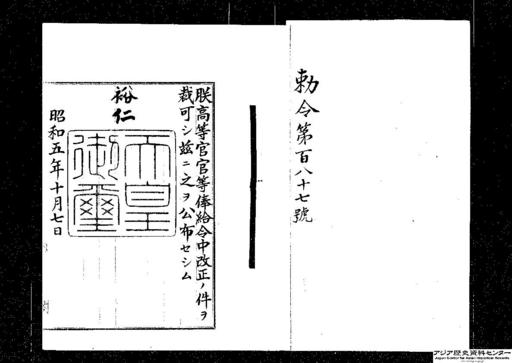 勅令第百八十七號
朕高等官官等俸給令中改正ノ件ヲ
裁可シ玆ニ之ヲ公布セシム
裕仁
天皇
御璽
昭和五年十月七日
アジア歴史資料センター
Japan Center for Asian Historical Records